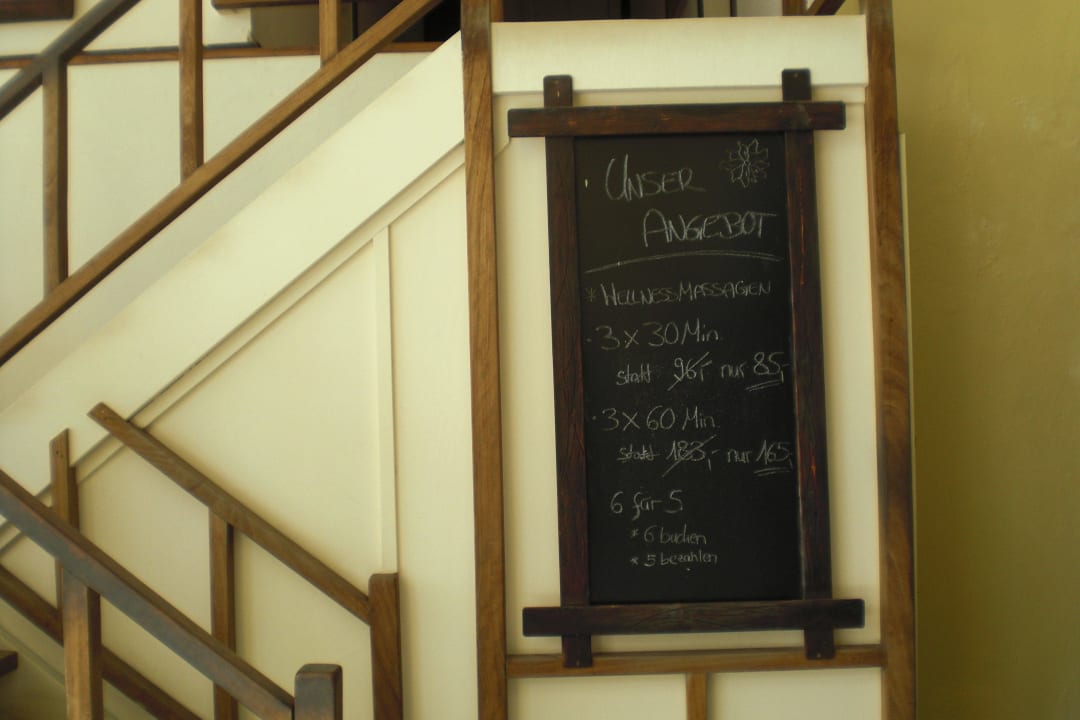 UNSER
ANGEBOT
* WELLNESSMASSAGEN
· 3 x 30 Min.
statt 96,- nur 85,-
· 3 x 60 Min.
statt 183,- nur 165,-
6 für 5
* 6 buchen
* 5 bezahlen